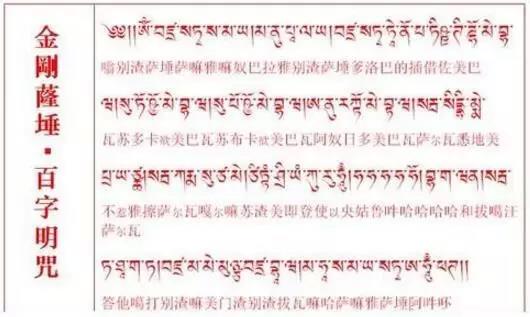 金剛薩埵·百字明咒
༄༅། །ཨོཾ་བཛྲ་སཏྭ་ས་མ་ཡ། མ་ནུ་པཱ་ལ་ཡ། བཛྲ་སཏྭ་ཏྭེ་ནོ་པ་ཏིཥྛ་ཏི་ཌྷོ་མེ་བྷ་
嗡别渣萨埵萨嘛雅嘛奴巴拉雅别渣萨埵爹洛巴的插借佐美巴
ཝ། སུ་ཏོ་ཥྱོ་མེ་བྷ་ཝ། སུ་པོ་ཥྱོ་མེ་བྷ་ཝ། ཨ་ནུ་རཀྟོ་མེ་བྷ་ཝ། སརྦ་སིདྡྷི་མྨེ་
瓦苏多卡欲美巴瓦苏布卡欲美巴瓦阿奴日多美巴瓦萨尔瓦悉地美
པྲ་ཡ་ཙྪ། སརྦ་ཀརྨ་སུ་ཙ་མེ། ཙིཏྟཾ་ཤྲཱི་ཡཾ་ཀུ་རུ་ཧཱུྃ། ཧ་ཧ་ཧ་ཧ་ཧོ། བྷ་ག་ཝན། སརྦ་
不惹雅擦萨尔瓦嘎尔嘛苏渣美即登使以央姑鲁吽哈哈哈哈和拔噶汪
萨尔瓦
ཏ་ཐཱ་ག་ཏ། བཛྲ་མ་མེ་མུཉྩ་བཛྲ་བྷ་ཝ། མ་ཧཱ་ས་མ་ཡ་སཏྭ་ཨཱཿ ཧཱུྃ་ཕཊ། །
答他噶打别渣嘛美门渣别渣拔瓦嘛哈萨嘛雅萨埵阿吽呸